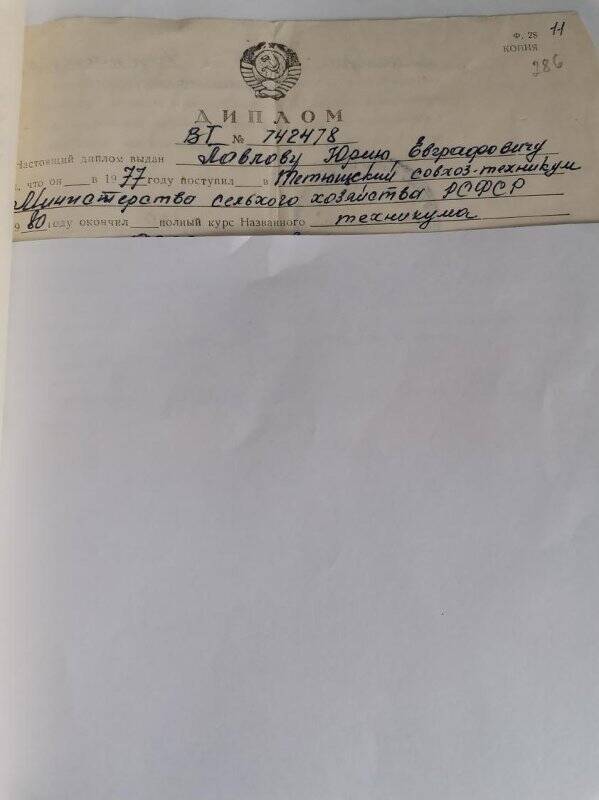 Ф. 28 11
КОПИЯ
286
ДИПЛОМ
ВТ № 742478
Настоящий диплом выдан Павлову Юрию Евграфовичу
, что он в 1977 году поступил в Тетюшский совхоз-техникум
Министерства сельхого хозяйства РСФСР
9 80 году окончил полный курс Названного техникума